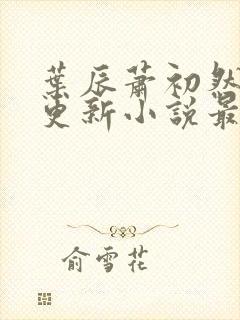 葉辰蕭初然
更新小說最
俞雪花